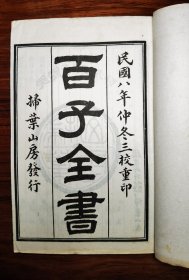 民國八年仲冬三校重印
百子全書
掃葉山房發行